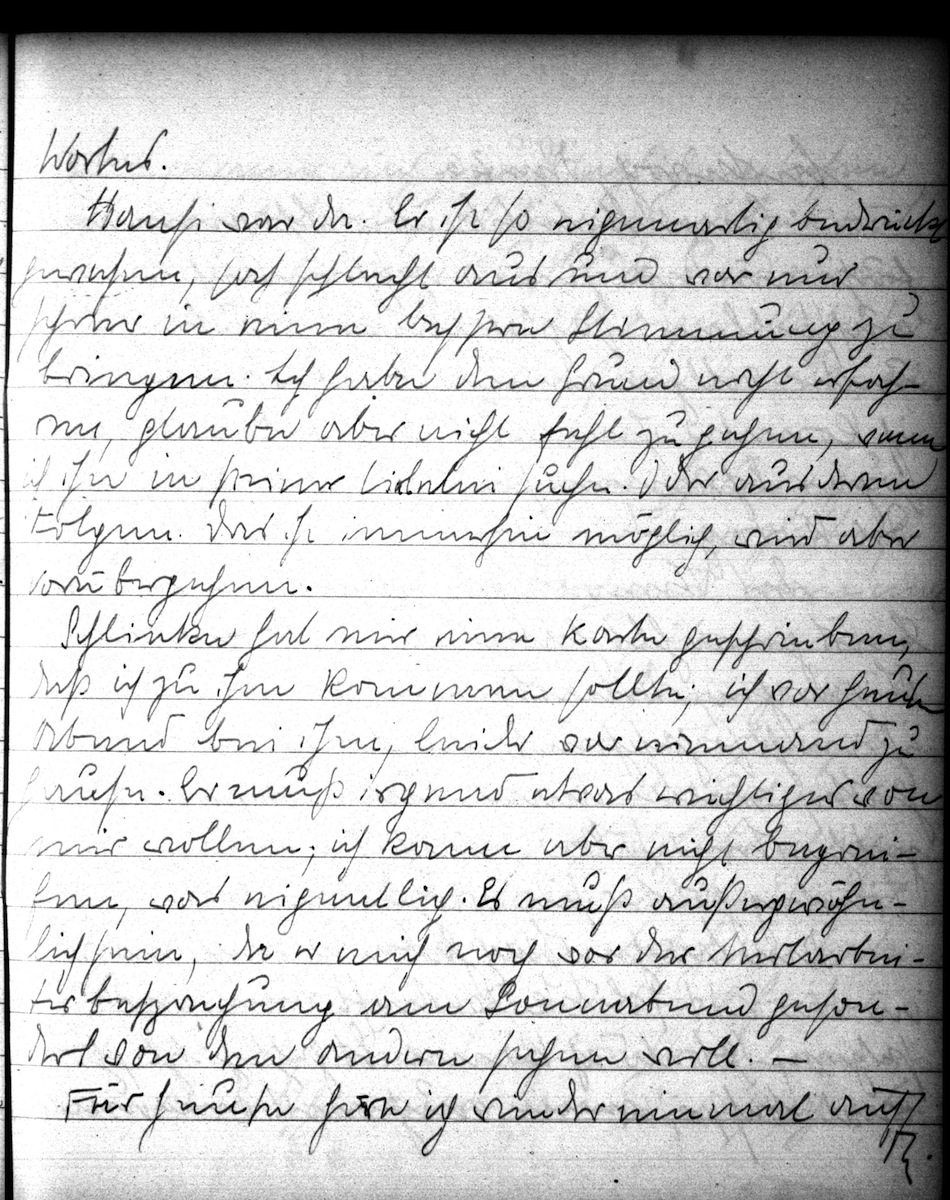 Wortes.
Hansi war da. Er ist so eigenartig bedrückt
gewesen, sah schlecht aus und war nur
schwer in eine bessere Stimmung zu
bringen. Ich habe den Grund nicht erfah-
ren, glaube aber nicht fehl zu gehen, wenn
ich ihn in seiner suche. Oder aus deren
Folgen. Das ist immerhin möglich, wird aber
vorübergehen.
Schlinke hat mir eine Karte geschrieben,
daß ich zu ihm kommen sollte; ich war heute
Abend bei ihm, leider war niemand zu
Hause. Er muß irgend etwas wichtiges von
mir wollen; ich kann aber nicht begrei-
fen, was eigentlich. Es muß außergewöhn-
lich sein, da er mich noch vor der Mitarbei-
terbesprechung am Sonnabend geson-
dert von den andern sehen will. —
Für heute höre ich wieder einmal auf.